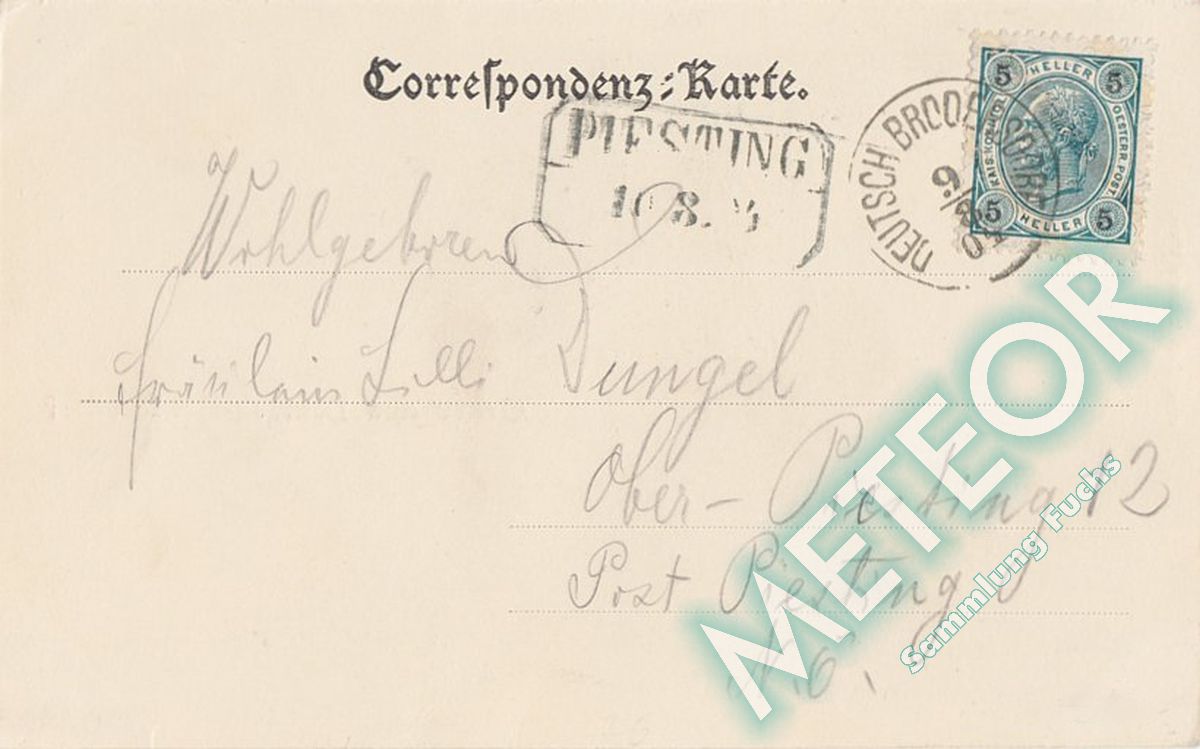 Correspondenz-Karte.
PIESTING
10 8.
DEUTSCH BRODERSDORF
9/8 04
5 HELLER 5
KAIS. KÖNIGL. OESTERR. POST.
5 HELLER 5
Wohlgeboren
Fräulein Lilli Dungel
Ober-Piesting 12
Post Piesting
N.Ö.
METEOR
Sammlung Fuchs